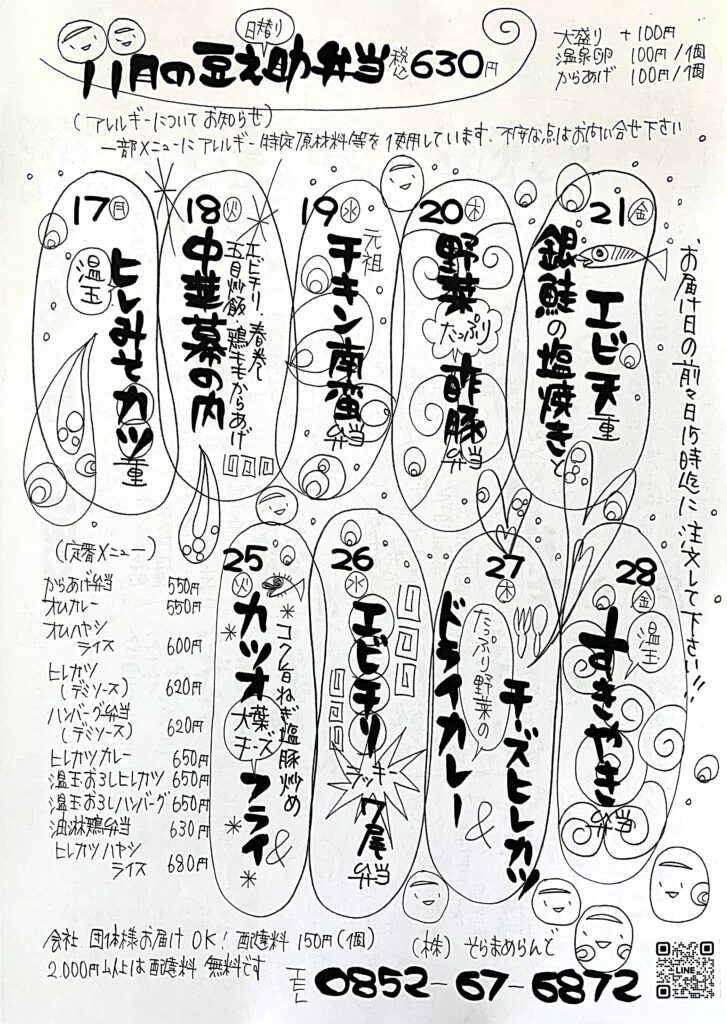 日替り
11月の豆之助弁当 税込 630円
大盛り +100円
温泉卵 100円/1個
からあげ 100円/1個
(アレルギーについてお知らせ)
一部メニューにアレルギー特定原材料等を使用しています。不安な点はお問い合せ下さい
17 月
温玉
ヒレみそカツ重
18 火
中華幕の内
エビチリ、春巻し
五目炒飯・鶏ももからあげ
19 水
元祖
チキン南蛮弁当
20 木
野菜
たっぷり
酢豚弁当
21 金
エビ天重
銀鮭の塩焼きと
お届け日の前々日15時迄に注文して下さい!!
(定番メニュー)
からあげ弁当 550円
オムカレー 550円
オムハヤシ
ライス 600円
ヒレカツ
(デミソース) 620円
ハンバーグ弁当
(デミソース) 620円
ヒレカツカレー 650円
温玉おろしヒレカツ 650円
温玉おろしハンバーグ 650円
油淋鶏弁当 630円
ヒレカツハヤシ
ライス 680円
25 火
コク旨ねぎ塩豚炒め
&
カツオ
大葉
チーズ
フライ
26 水
エビチリ
ラッキー
7尾
弁当
27 木
チーズヒレカツ
&
たっぷり野菜の
ドライカレー
28 金
温玉
すきやき弁当
会社、団体様お届けOK! 配達料 150円(1個)
2,000円以上は配達料 無料です
(株) そらまめらんど
TEL 0852-67-6872
LINE